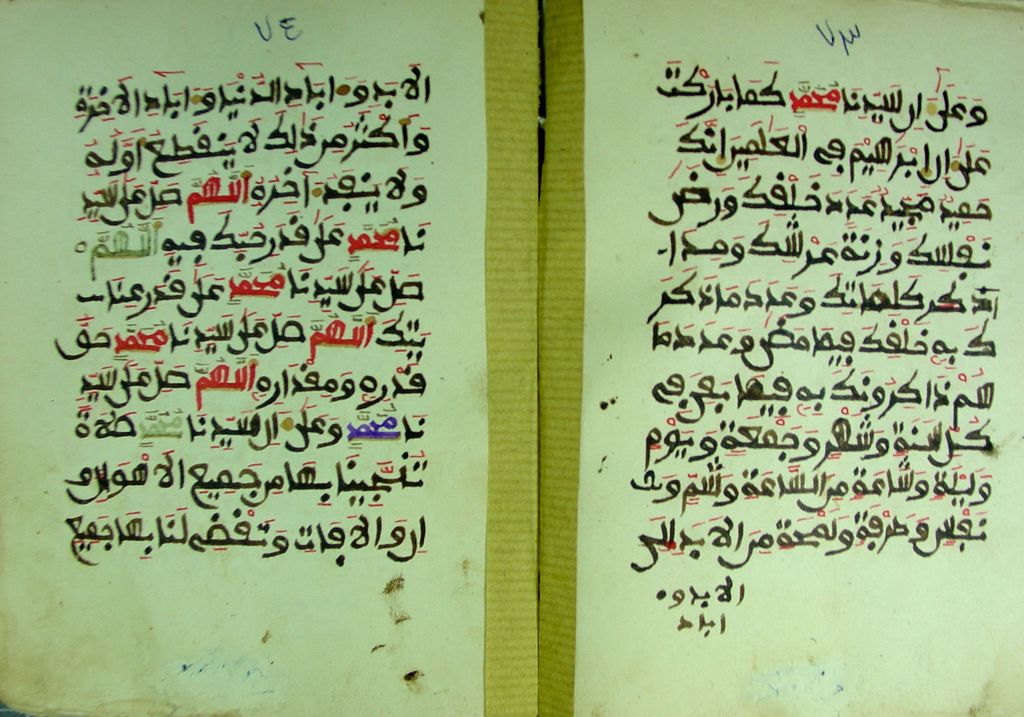 ٧٣
وعلى ال سيدنا محمد كما باركت
على ال ابرهيم في العلمين انك
حميد مجيد عدد خلقك ورضى
نفسك وزنة عرشك ومدا
كلماتك وعدد ما ذكر
ك به خلقك فيما مضى وعدد ما
هم ذاكرونك به فيما بقي في
كل سنة وشهر وجمعة ويوم
وليلة وساعة من الساعة وشم و
نفس وطرفة ولمحة من الابد الى
الابد و
اباد
٧٤
الابد و اباد الدنيا و اباد الاخرة
وأكثر من ذلك لا ينقطع اوله
ولا ينفد اخره اللهم صل على سيد
نا محمد على قدر حبك فيه اللهم
صل على سيدنا محمد على قدر عنا
يتك اللهم صل على سيدنا محمد حق
قدره ومقداره اللهم صل على سيد
نا محمد وعلى ال سيدنا محمد صلاة
تنجينا بها من جميع الاهوال و
والافات وتقضى لنا بها جميع